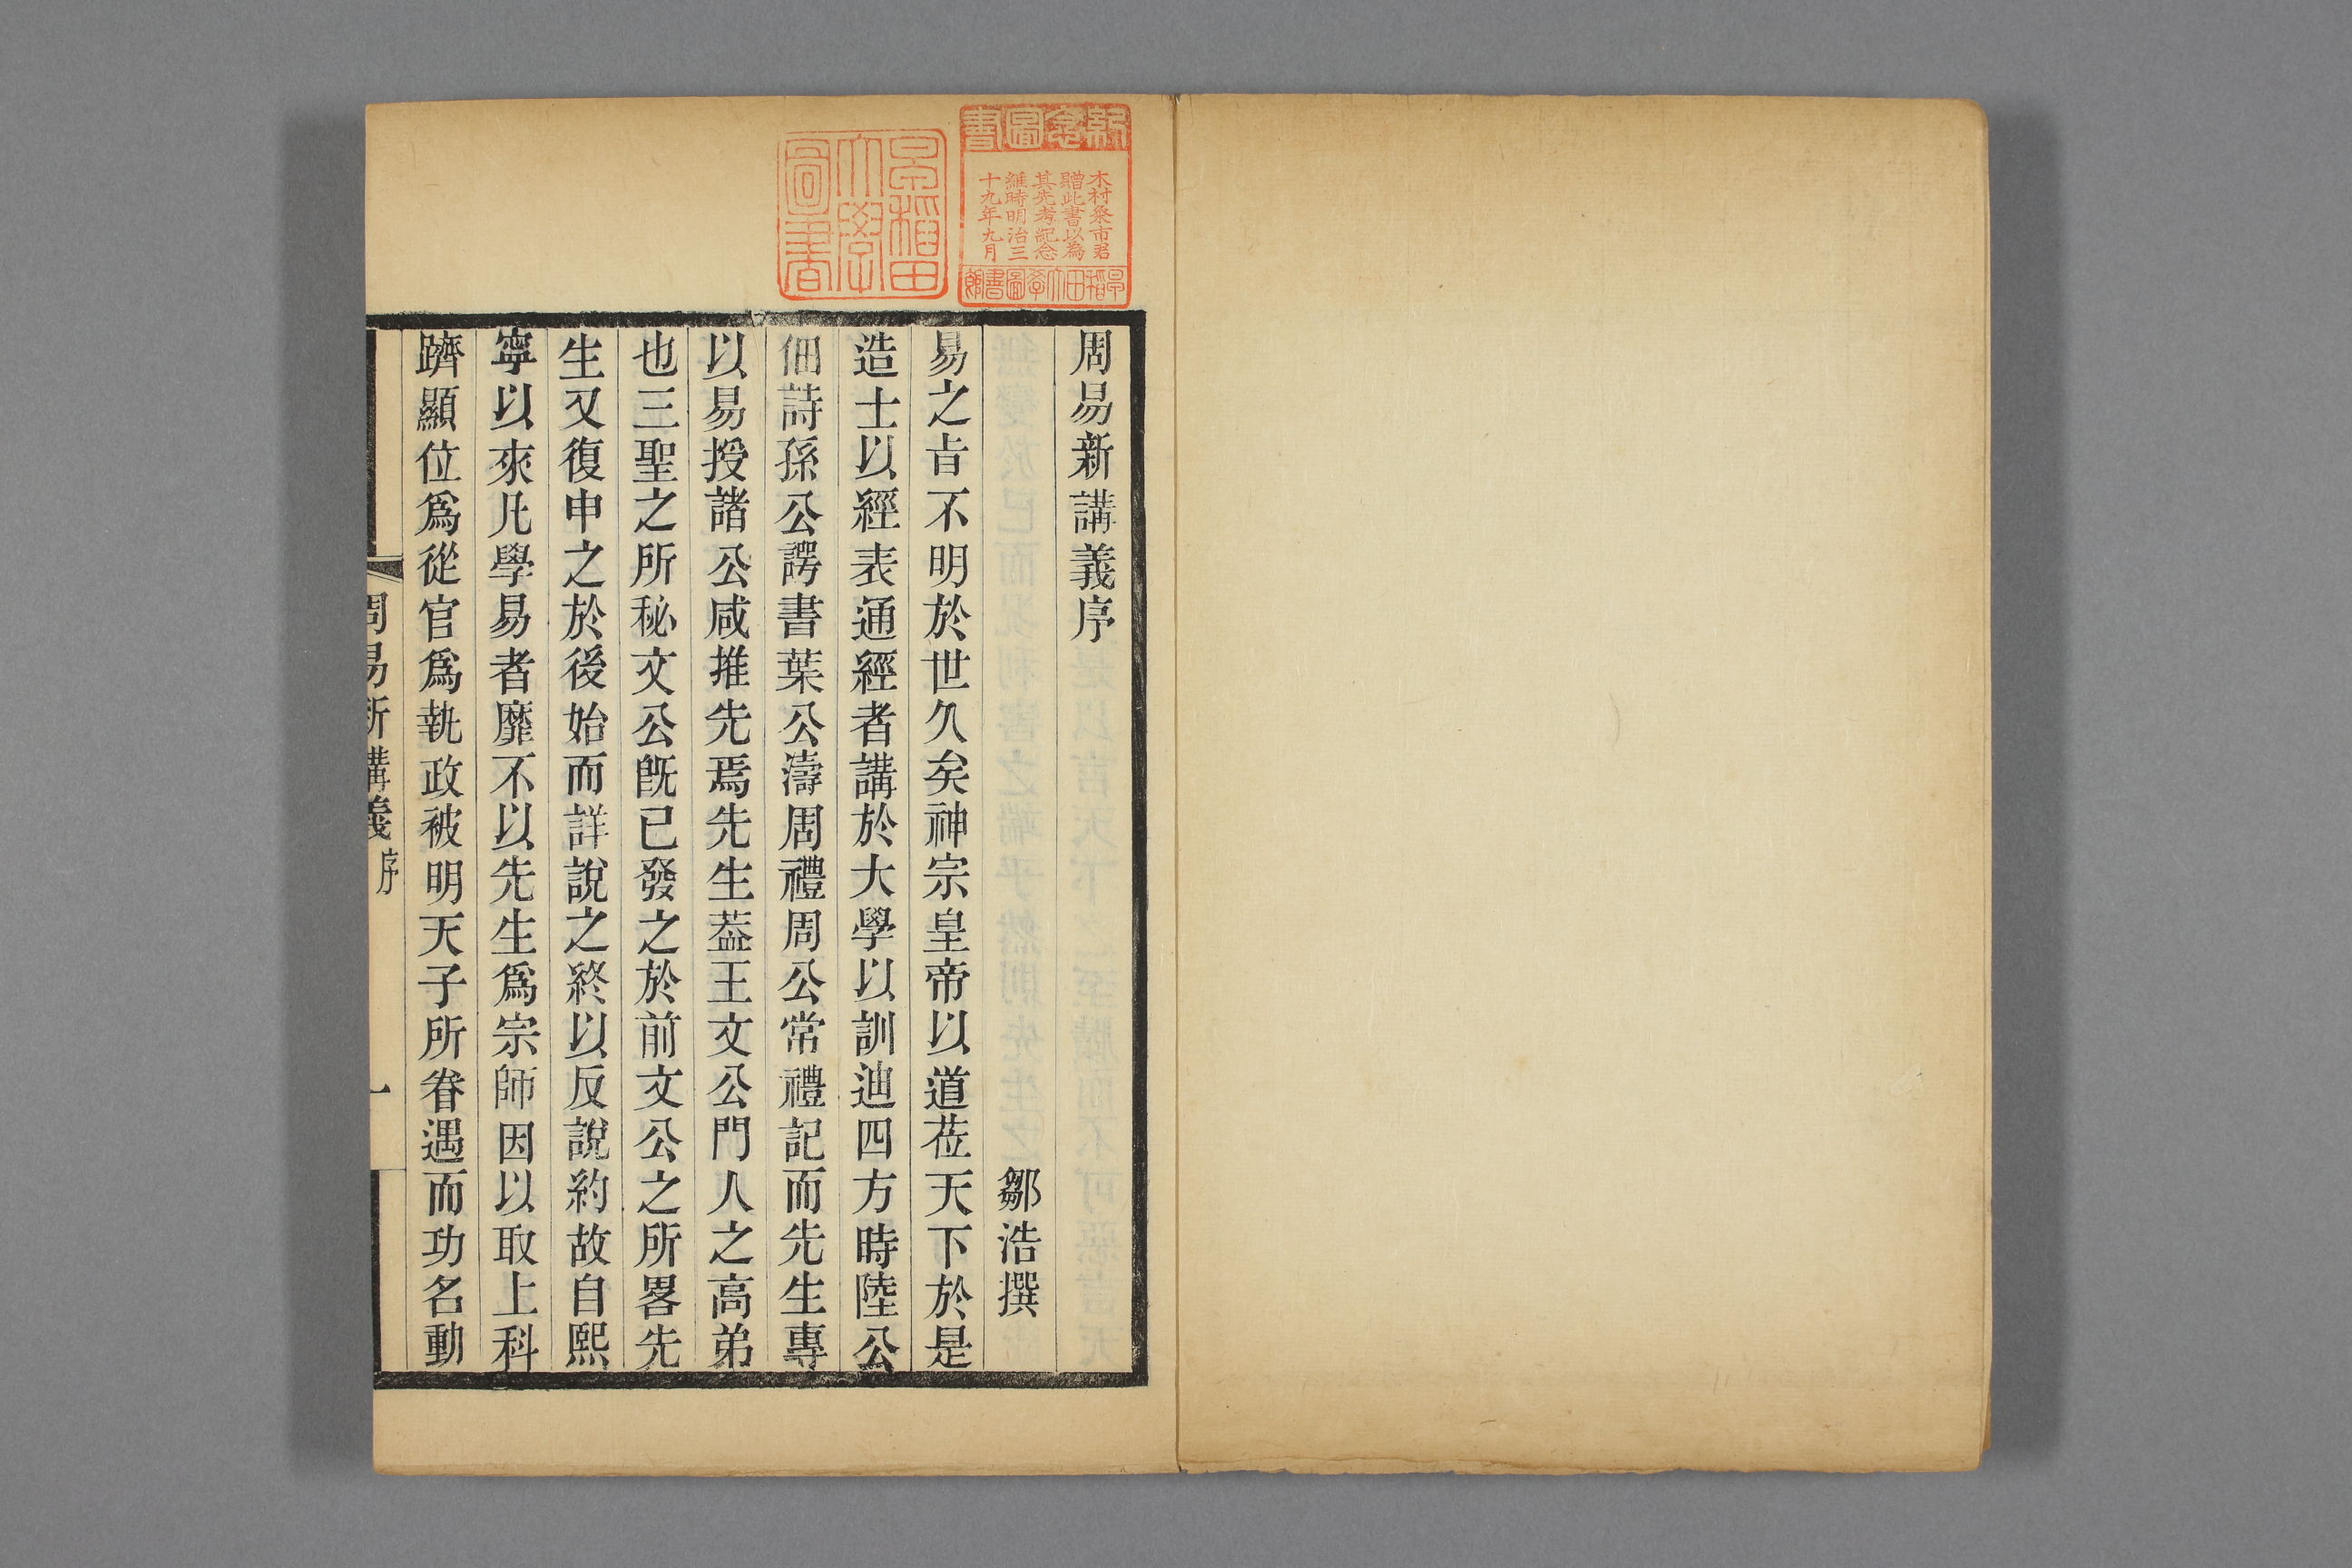 周易新講義序
鄒浩撰
易之㫖不明於世久矣神宗皇帝以道莅天下於是
造士以經表通經者講於大學以訓迪四方時陸公
佃詩孫公諤書葉公濤周禮周公常禮記而先生專
以易授諸公咸推先焉先生葢王文公門人之高弟
也三聖之所秘文公旣已發之於前文公之所畧先
生又復申之於後始而詳說之終以反說約故自熙
寧以來凡學易者靡不以先生爲宗師因以取上科
躋顯位爲從官爲執政被明天子所眷遇而功名動
周易新講義 序 一
木村粂市君
贈此書以為
其先考紀念
維時明治三
十九年九月
早稲田大學圖書館
早稲田
大學
圖書